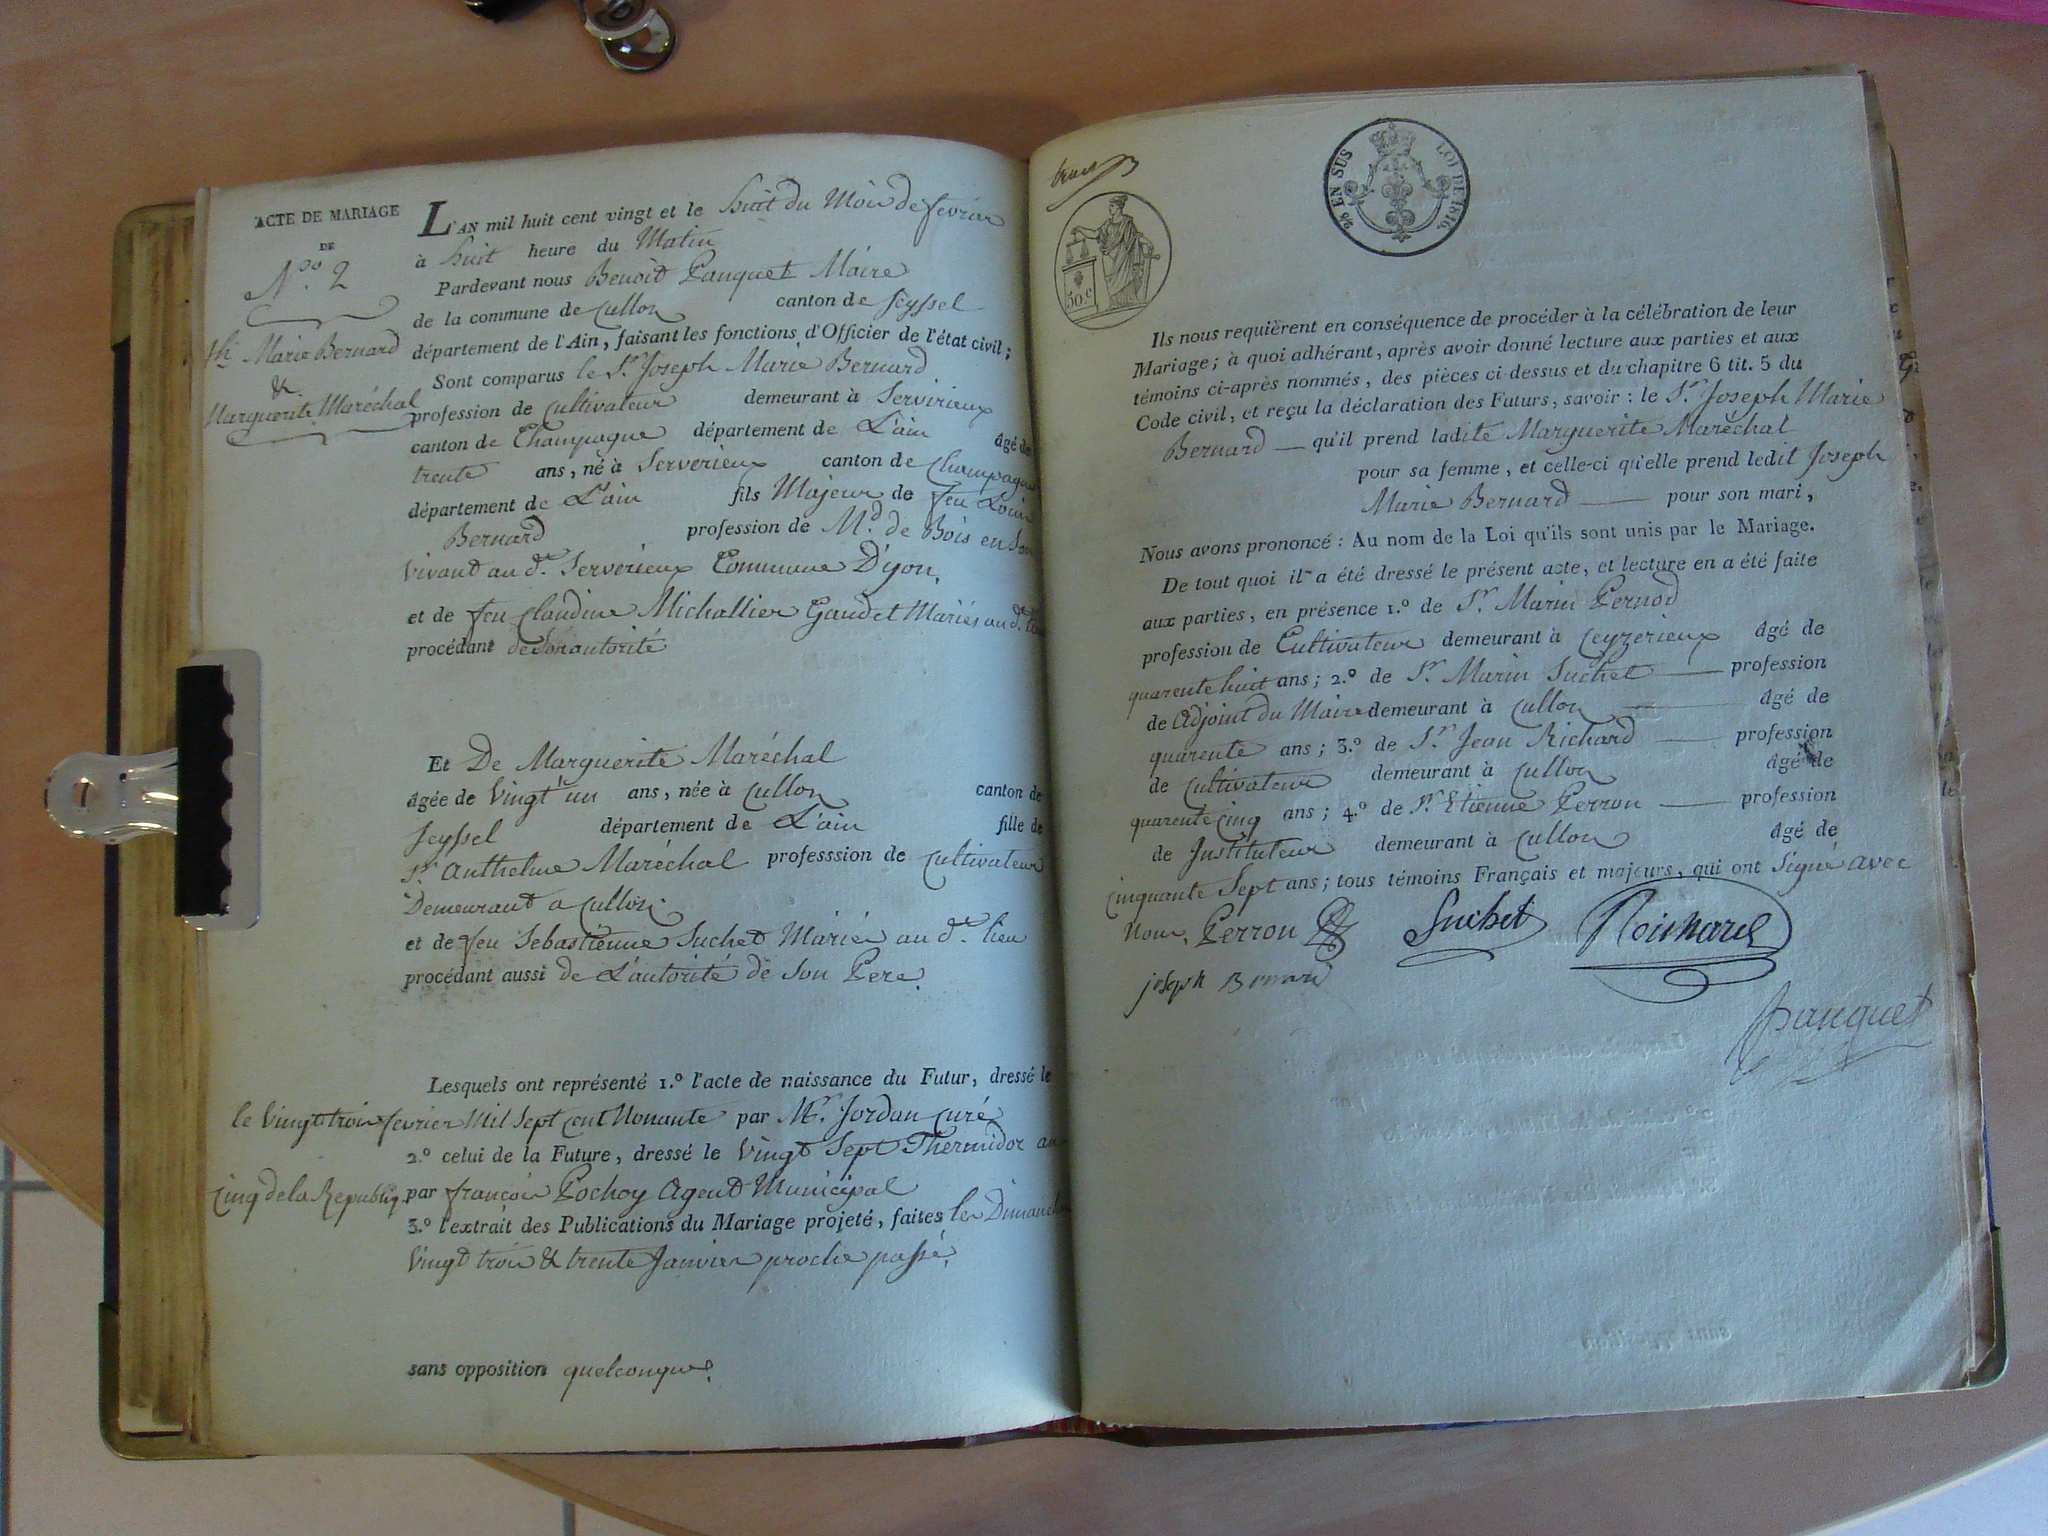 ACTE DE MARIAGE
DE
N.º 2
Jh. Marie Bernard
&
Marguerite Maréchal
L'AN mil huit cent vingt et le huit du Mois de fevrier
à huit heure du Matin
Pardevant nous Benoit Panquet Maire
de la commune de Cullon canton de Seyssel
département de l'Ain, faisant les fonctions d'Officier de l'état civil;
Sont comparus le Sr. Joseph Marie Bernard
profession de Cultivateur demeurant à Servirieux
canton de Champagne département de L'ain âgé de
trente ans, né à Serverieux canton de Champagne
département de L'ain fils Majeur de feu Louis
Bernard profession de Md. de Bois en Son
vivant au dt. Serverieux Commune D'yon,
et de feu Claudine Michallier Gaudet Mariés au dt. lieu
procédant de Son autorité
Et De Marguerite Maréchal
âgée de Vingt un ans, née à Cullon canton de
Seyssel département de L'ain fille de
Sr. Anthelme Maréchal professsion de Cultivateur
Demeurant a Cullon
et de feu Sebastienne Suchet Mariés au dt. lieu
procédant aussi de L'autorité de Son Pere.
Lesquels ont représenté 1.º l'acte de naissance du Futur, dressé le
le Vingt trois fevrier Mil Sept Cent Nonante par Mr. Jordan Curé
2.º celui de la Future, dressé le Vingt Sept Thermidor an
Cinq de la Republiq. par françois Pochoy Agent Municipal
3.º l'extrait des Publications du Mariage projeté, faites les Dimanches
Vingt trois & trente Janvier proche passé.
sans opposition quelconque.
2s EN SUS LOI DE 1816.
50 c
Ils nous requièrent en conséquence de procéder à la célébration de leur
Mariage; à quoi adhérant, après avoir donné lecture aux parties et aux
témoins ci-après nommés, des pièces ci-dessus et du chapitre 6 tit. 5 du
Code civil, et reçu la déclaration des Futurs, savoir: le Sr. Joseph Marie
Bernard — qu'il prend ladite Marguerite Maréchal
pour sa femme, et celle-ci qu'elle prend ledit Joseph
Marie Bernard — pour son mari,
Nous avons prononcé: Au nom de la Loi qu'ils sont unis par le Mariage.
De tout quoi il a été dressé le présent acte, et lecture en a été faite
aux parties, en présence 1.º de Sr. Marin Pernod
profession de Cultivateur demeurant à Ceyzerieux âgé de
quarente huit ans; 2.º de Sr. Marin Suchet — profession
de Adjoint du Maire demeurant à Cullon — âgé de
quarente ans; 3.º de Sr. Jean Richard — profession
de Cultivateur demeurant à Cullon âgé de
quarente cinq ans; 4.º de Sr. Etienne Perron — profession
de Instituteur demeurant à Cullon âgé de
cinquante Sept ans; tous témoins Français et majeurs, qui ont Signé avec
Nous. Perron Suchet
joseph Bernard
panquet